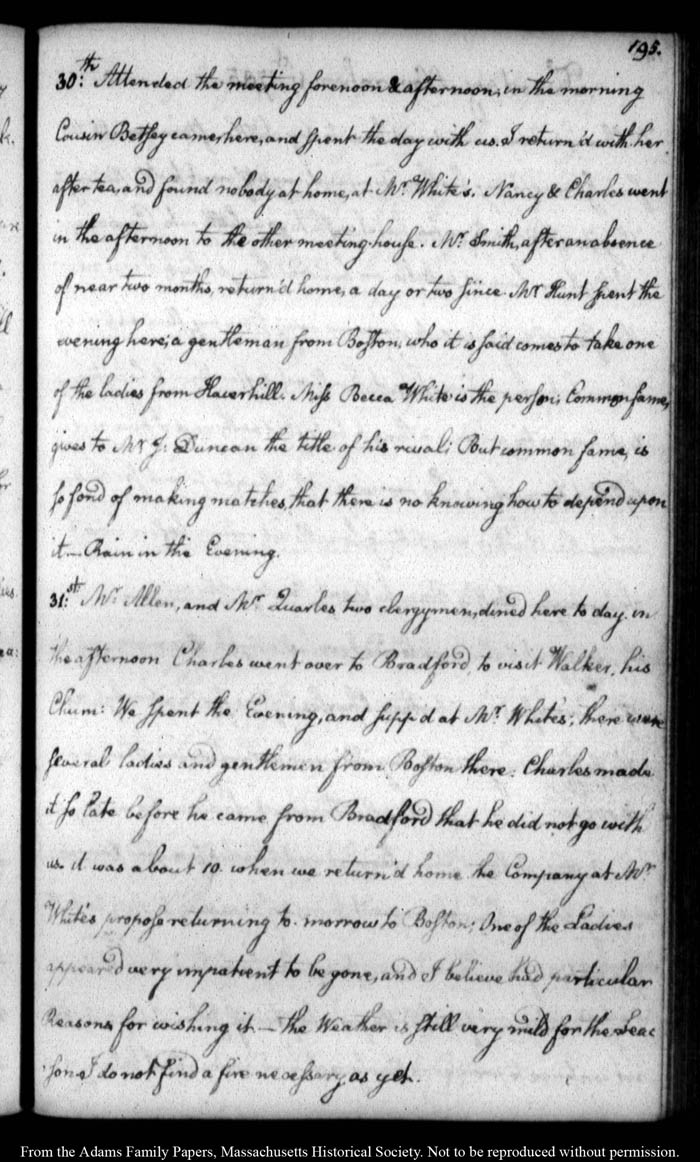 195.
30:th Attended the meeting forenoon & afternoon; in the morning
Cousin Betsey came here, and spent the day with us. I return'd with her
after tea, and found nobody at home, at Mr. White's. Nancy & Charles went
in the afternoon to the other meeting-house. Mr. Smith, after an absence
of near two months, return'd home, a day or two since Mr Hunt spent the
evening here; a gentleman from Boston, who it is said comes to take one
of the ladies from Haverhill. Miss Becca White is the person; Common fame,
gives to Mr J: Duncan the title of his rival; But common fame, is
so fond of making matches, that there is no knowing how to depend upon
it — Rain in the Evening.
31:st Mr. Allen, and Mr. Quarles two clergymen, dined here to day. in
the afternoon Charles went over to Bradford, to visit Walker, his
Chum: We spent the Evening, and supp'd at Mr. White's; there were
several ladies and gentlemen from Boston there. Charles made
it so late before he came from Bradford that he did not go with
us. it was about 10. when we return'd home the Company at Mr.
White's propose returning to-morrow to Boston; One of the Ladies
appeared very impatient to be gone, and I believe had particular
Reasons for wishing it — the Weather is still very mild for the Sea-
son I do not find a fire necessary as yet.
From the Adams Family Papers, Massachusetts Historical Society. Not to be reproduced without permission.